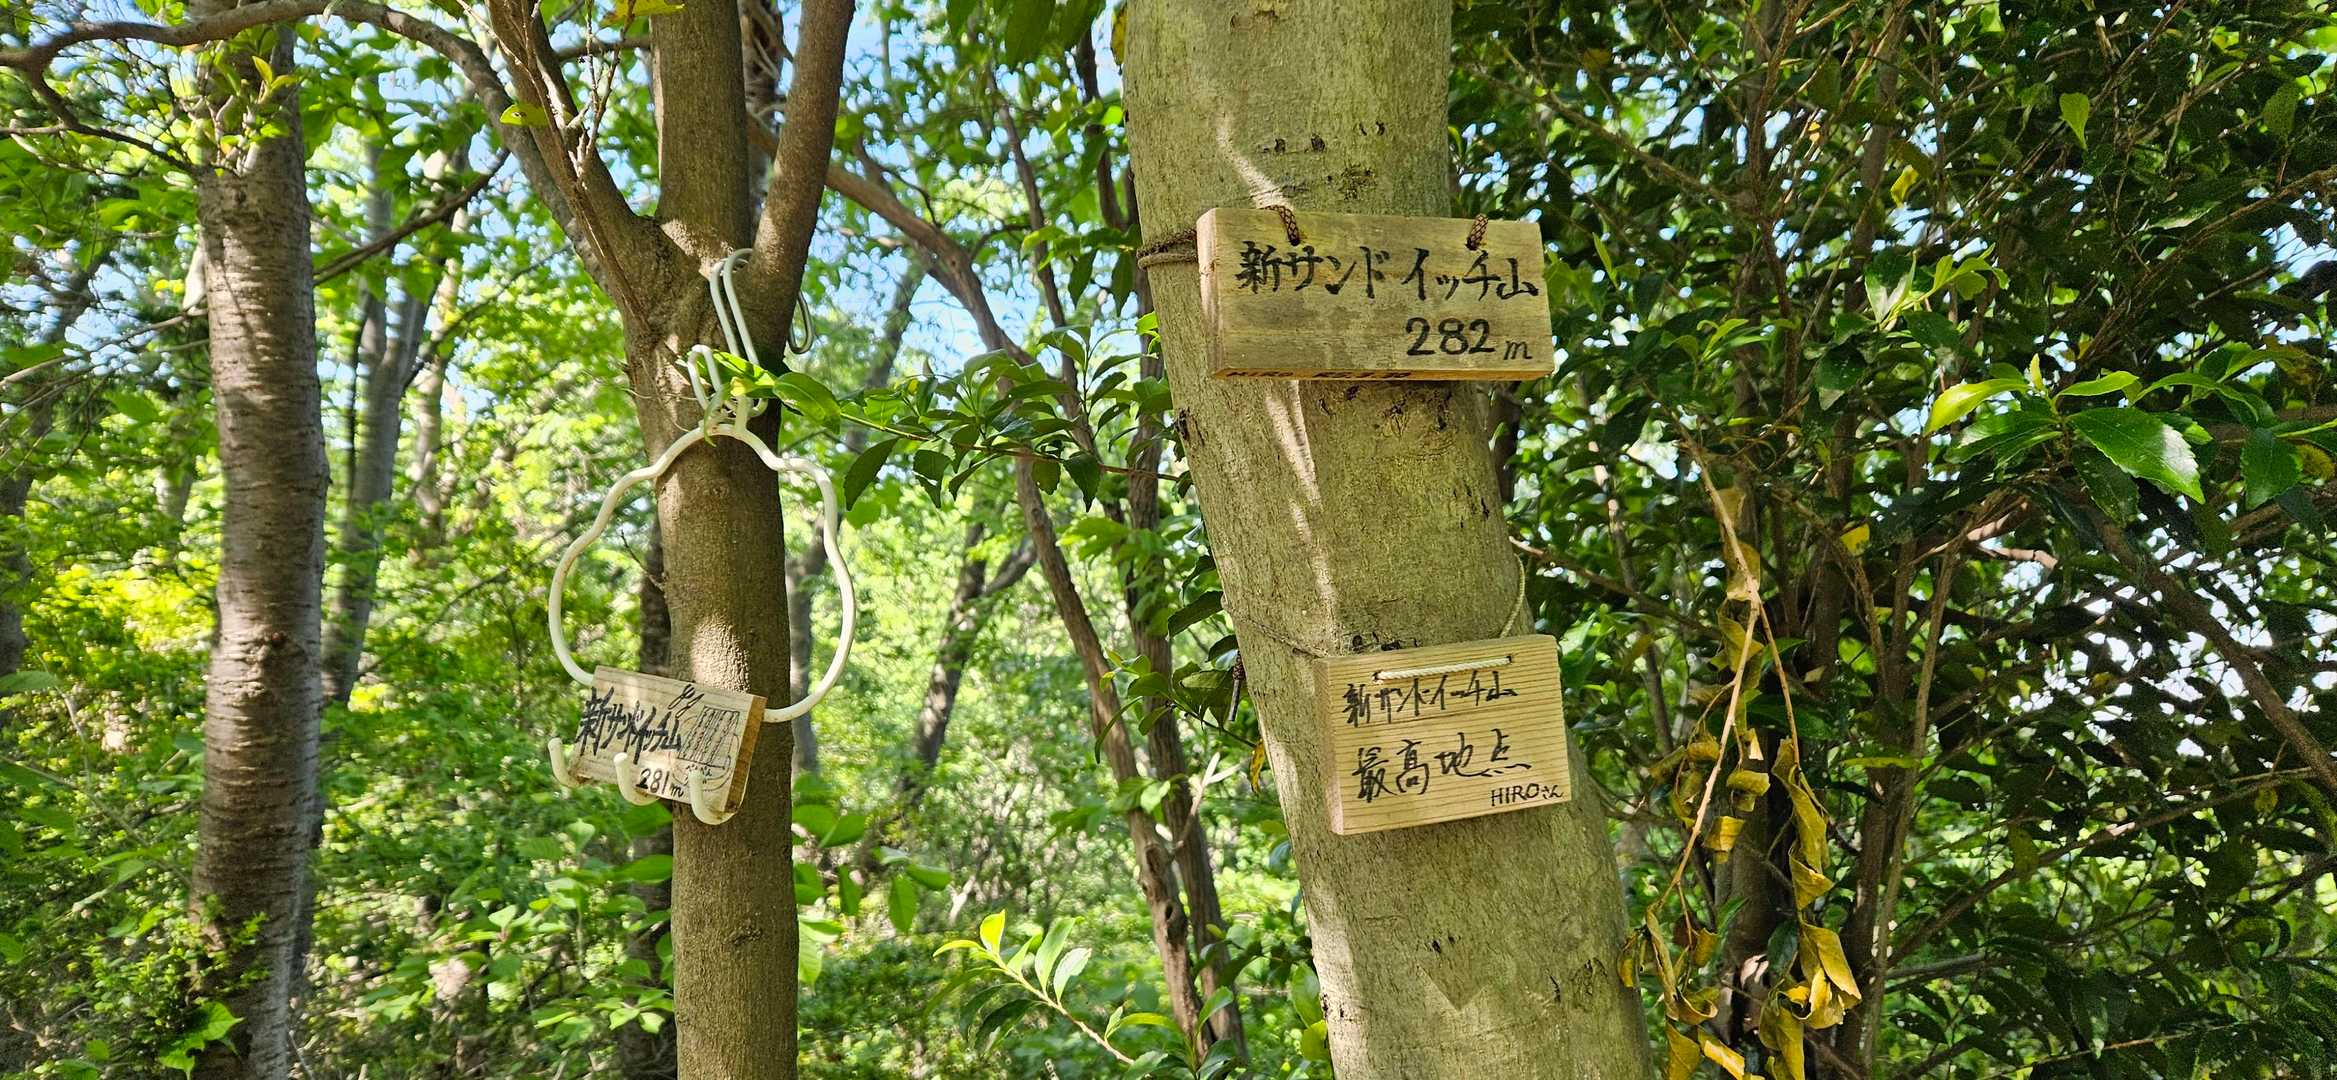 新サンドイッチ山
281m
新サンドイッチ山
282m
新サンドイッチ山
最高地点
HIROさん